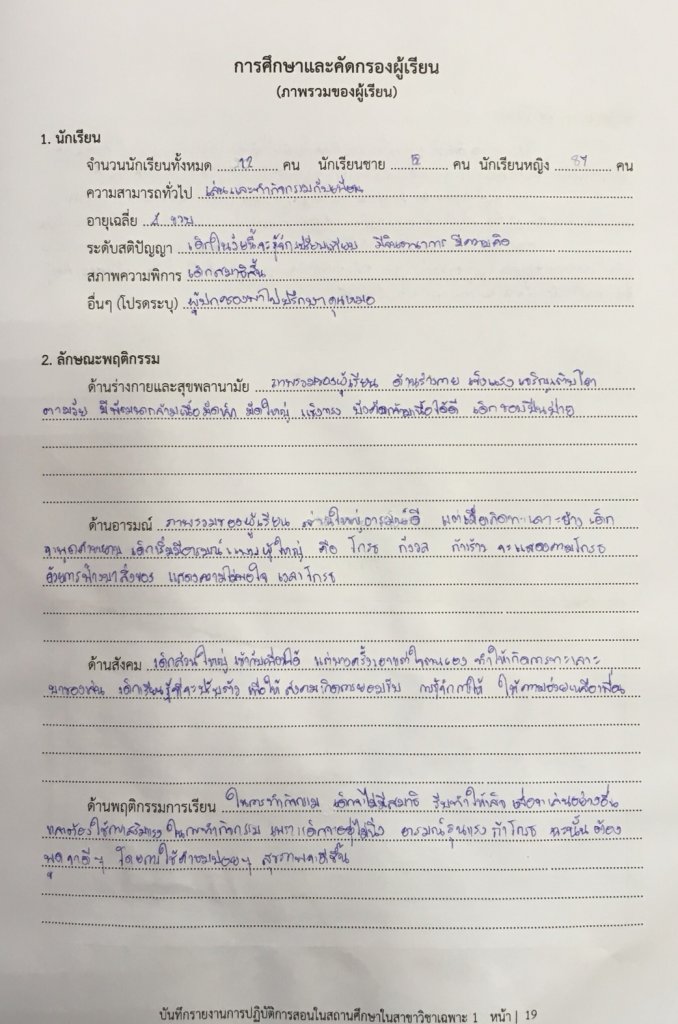 การศึกษาและคัดกรองผู้เรียน
(ภาพรวมของผู้เรียน)
1. นักเรียน
จำนวนนักเรียนทั้งหมด 12 คน นักเรียนชาย คน นักเรียนหญิง คน
ความสามารถทั่วไป เล่นและทำกิจกรรมกับเพื่อน
อายุเฉลี่ย ขวบ
ระดับสติปัญญา เด็กในวัยนี้จะรู้จักเปรียบเทียบ มีจินตนาการ มีความคิด
สภาพความพิการ เด็กสมาธิสั้น
อื่นๆ (โปรดระบุ) ผู้ปกครองพาไปปรึกษาคุณหมอ
2. ลักษณะพฤติกรรม
ด้านร่างกายและสุขพลานามัย ภาพรวมของผู้เรียน ด้านร่างกาย แข็งแรง เจริญเติบโต
ตามวัย มีพัฒนาการกล้ามเนื้อมัดเล็ก มัดใหญ่ แข็งแรง บังคับกล้ามเนื้อได้ดี เด็กชอบปีนป่าย
ด้านอารมณ์ ภาพรวมของผู้เรียน ส่วนใหญ่อารมณ์ดี แต่เมื่อเกิดทะเลาะบ้าง เด็ก
จะพูดคำหยาบ เด็กเริ่มมีอารมณ์แบบผู้ใหญ่ คือ โกรธ กังวล ก้าวร้าว จะแสดงความโกรธ
ด้วยการขว้างปาสิ่งของ แสดงความไม่พอใจ เวลาโกรธ
ด้านสังคม เด็กส่วนใหญ่ เข้ากับเพื่อนได้ แต่บางครั้งเอาแต่ใจตนเอง ทำให้เกิดการทะเลาะ
เด็กเรียนรู้ที่จะปรับตัว เพื่อให้สังคมเกิดการยอมรับ การรู้จักการให้ ให้ความช่วยเหลือเพื่อน
ด้านพฤติกรรมการเรียน ในการทำกิจกรรม เด็กจะไม่มีสมาธิ รีบทำให้เสร็จ เพื่อจะเล่นอย่างอื่น
ต้องใช้การเสริมแรง ในการทำกิจกรรม เพราะเด็กจะอยู่ไม่นิ่ง อารมณ์รุนแรง ถ้าโกรธ ฉะนั้น ต้อง
พูดจาดีๆ โดยการใช้คำชมบ่อยๆ จะดีขึ้น
บันทึกรายงานการปฏิบัติการสอนในสถานศึกษาในสาขาวิชาเฉพาะ 1 หน้า | 19